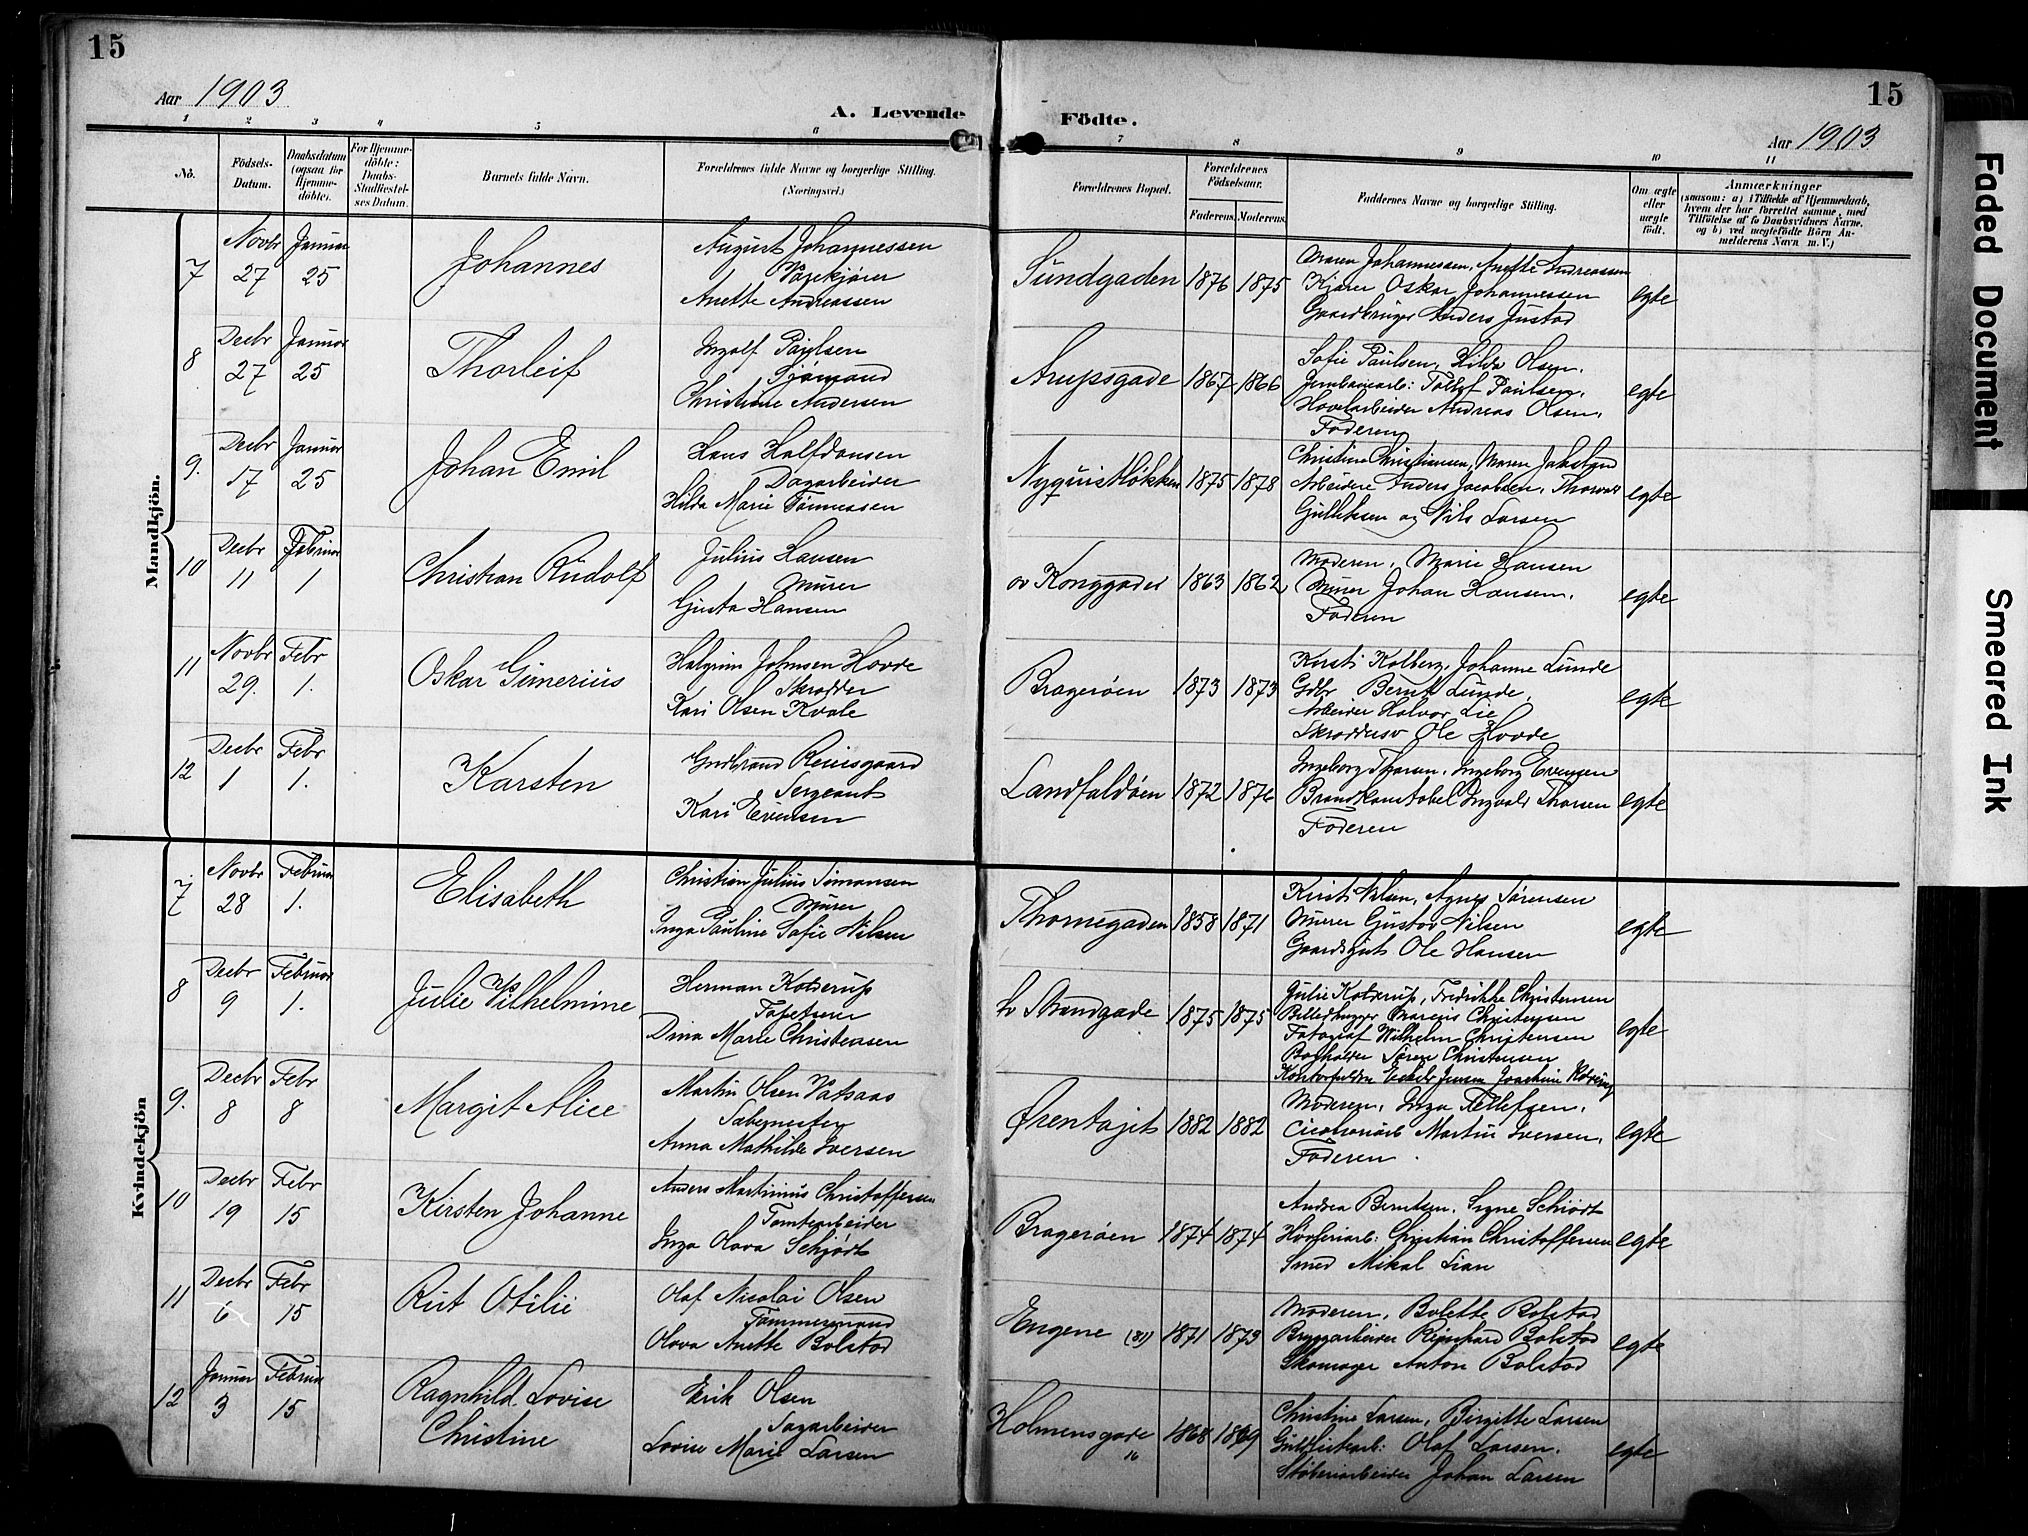 15
15
Aar 1903
A. Levende
Födte.
Aar 1903
1 2 3 4 5 6 7 8 9 10 11
No.
Födsels-Datum.
Daabsdatum (ogsaa for Hjemme-döbte).
For Hjemme-döbte: Daabs-Stadfæstel-ses Datum.
Barnets fulde Navn.
Forældrenes fulde Navne og borgerlige Stilling.
(Næringsvei.)
Forældrenes Bopæl.
Forældrenes Födselsaar.
Faderens. Moderens.
Faddernes Navne og borgerlige Stilling.
Om ægte eller uægte födt.
Anmærkninger
(saasom: a) i Tilfælde af Hjemmedaab,
hvem der har forrettet samme, med
Tilföielse af to Daabsvidners Navne,
og b) ved uægtefödte Börn An-
melderens Navn m. V.)
Mandkjön.
7
Novbr 27
Januar 25
Johannes
August Johannessen
Vognkjører
Anette Andreassen
Sundgaden
1876 1875
Maren Johannessen, Anette Andreassen
Kjører Oskar Johannessen
Gaardbruger Anders Justad
egte
8
Decbr 27
Januar 25
Thorleif
Ingolf Paulsen
Sjømand
Christine Andersen
Arupsgade
1867 1866
Sofie Paulsen, Hilda Olsen.
Jernbanearb: Tollef Paulsen,
Høvelarbeider Andreas Olsen,
Faderen
egte
9.
Decbr 17
Januar 25
Johan Emil
Hans Halfdansen
Dagarbeider
Hilda Marie Tønnessen
Nyquistløkken
1875 1878
Christine Christiansen, Maren Jakstad
Arbeidere Anders Jacobsen, Thorvald
Gulliksen og Nils Larsen
egte
10
Decbr 11
Februar 1
Christian Rudolf
Julius Hansen
Murer
Gusta Hansen
øv Konggades
1863 1862
Moderen, Marie Hansen
Murer Johan Hansen.
Faderen
egte
11
Novbr 29.
Febr 1.
Oskar Gunerius
Halgrim Johnsen Hovde
Skrædder
Kari Olsen Kvale
Bragerøen
1873 1873
Kirsti Kolberg, Johanne Lunde
Gdbr Bernt Lunde,
Arbeider Halvor Lie
Skræddersv Ole Hovde
egte
12
Decbr 1
Febr 1.
Karsten
Gudbrand Reiersgaard
Sergeant
Kari Evensen
Landfaldøen
1872 1876
Ingeborg Thorsen, Ingeborg Evensen
Brandkonstabel Ingvald Thorsen
Faderen
egte
Kvindekjön
7
Novbr 28
Februar 1.
Elisabeth
Christian Julius Simonsen
Murer
Inga Pauline Sofie Nilsen
Thornegaden
1858 1871
Kirsti Nilsen, Agnes Sørensen
Murer Gustav Nilsen
Gaardsgut Ole Hansen
egte
8
Decbr 9
Februar 1.
Julie Vilhelmine
Herman Kolderup
Tapetserer
Dina Marie Christensen
h Strandgade
1875 1875
Julie Kolderup, Fredrikke Christensen
Billedhugger Marcus Christensen
Fotograf Wilhelm Christensen
Bogholder Søren Christensen
egte
9.
Decbr 8
Febr 8
Margit Alice
Martin Olsen Vatsaas
Sabemester
Anna Mathilde Iversen
Ørentajet
1882 1882
Moderen, Inga Tellefsen,
Martin Iversen,
Faderen
egte
10
Decbr 19
Febr 15
Kirsten Johanne
Anders Martinius Christoffersen
Tomtearbeider
Inga Olava Schjødt
Bragerøen
1874 1874
Andrea Berntsen, Signe Schiødt
Høvleriarb: Christian Christoffersen
Smed Mikal Lian
egte
11
Decbr 6
Febr 15
Rut Otilie
Olaf Nicolai Olsen
Tømmermand
Olava Anette Bolstad
Engene (81)
1871 1873
Moderen, Bolette Bolstad
Bryggarbeider Reinhard Bolstad
Skomager Anton Bolstad
egte
12
Januar 3
Februar 15
Ragnhild Lovise
Christine
Erik Olsen
Sagarbeider
Lovise Marie Larsen
Holmensgade
16
1868 1869
Christine Larsen, Birgitte Larsen
Olaf Larsen.
Støberiarbeider Johan Larsen
egte
Faded Document
Smeared Ink